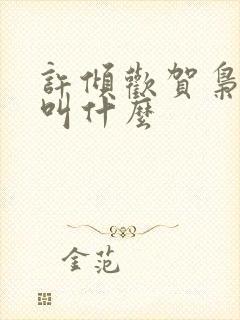 許傾歡賀梟
叫什麼
金范